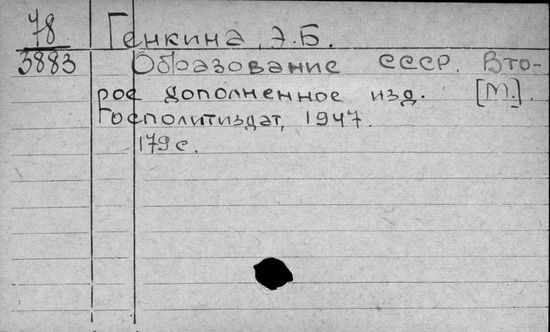 78 Генкина, Э.Б.
3883 Образование СССР. Вто-
рое дополненное изд. [М.].
Госполитиздат, 1947.
179 с.